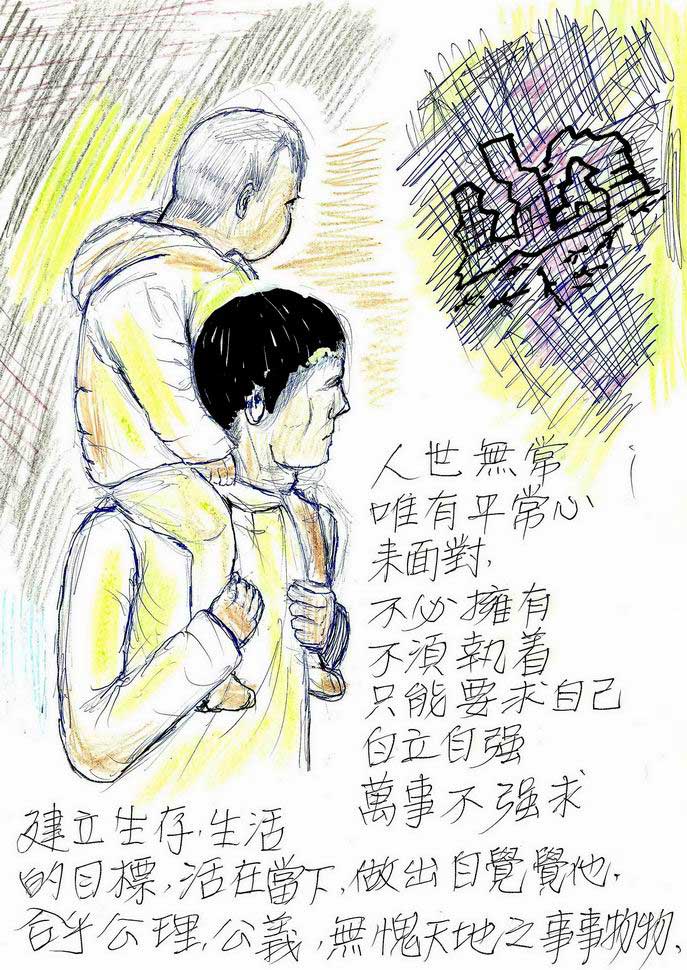 人世無常
唯有平常心
来面對,
不必擁有
不須執着
只能要求自己
自立自强
萬事不强求
建立生存,生活
的目標,活在當下,做出自覺覺他,
合乎公理,公義,無愧天地之事事物物,